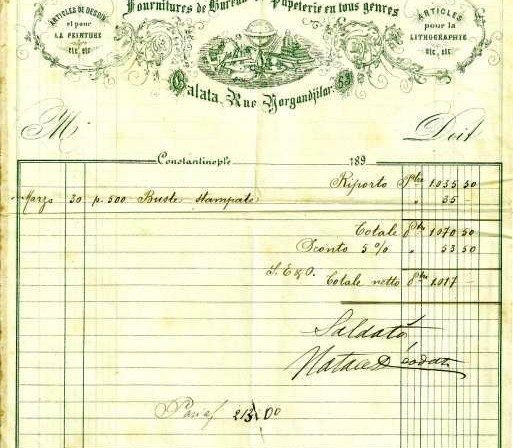 Fournitures de Bureau Papeterie en tous genres
ARTICLES DE DESSIN
et pour
LA PEINTURE
etc, etc
ARTICLES
pour la
LITHOGRAPHIE
etc, etc
Galata, Rue Yorgandjilar, 53
M. Doit
Constantinople 189
Riporto 1.035 50
Marzo 30 p. 500 Buste stampate " 35 -
Totale 1.070 50
Sconto 5 % " 53 50
S. E & O. Totale netto 1.017 -
Saldato